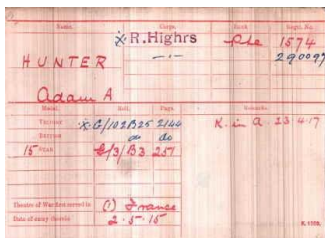 Name. Corps. Rank Regtl. No.
X R.Highrs Pte 1574
290097
HUNTER
Adam A
Medal. Roll. Page. Remarks.
VICTORY X G/102B25 2144 K. in A. 23.4.17
BRITISH do do
15 STAR G/3/B3 257
Theatre of War first served in (1) France
Date of entry therein 2.5.15
K. 1380.